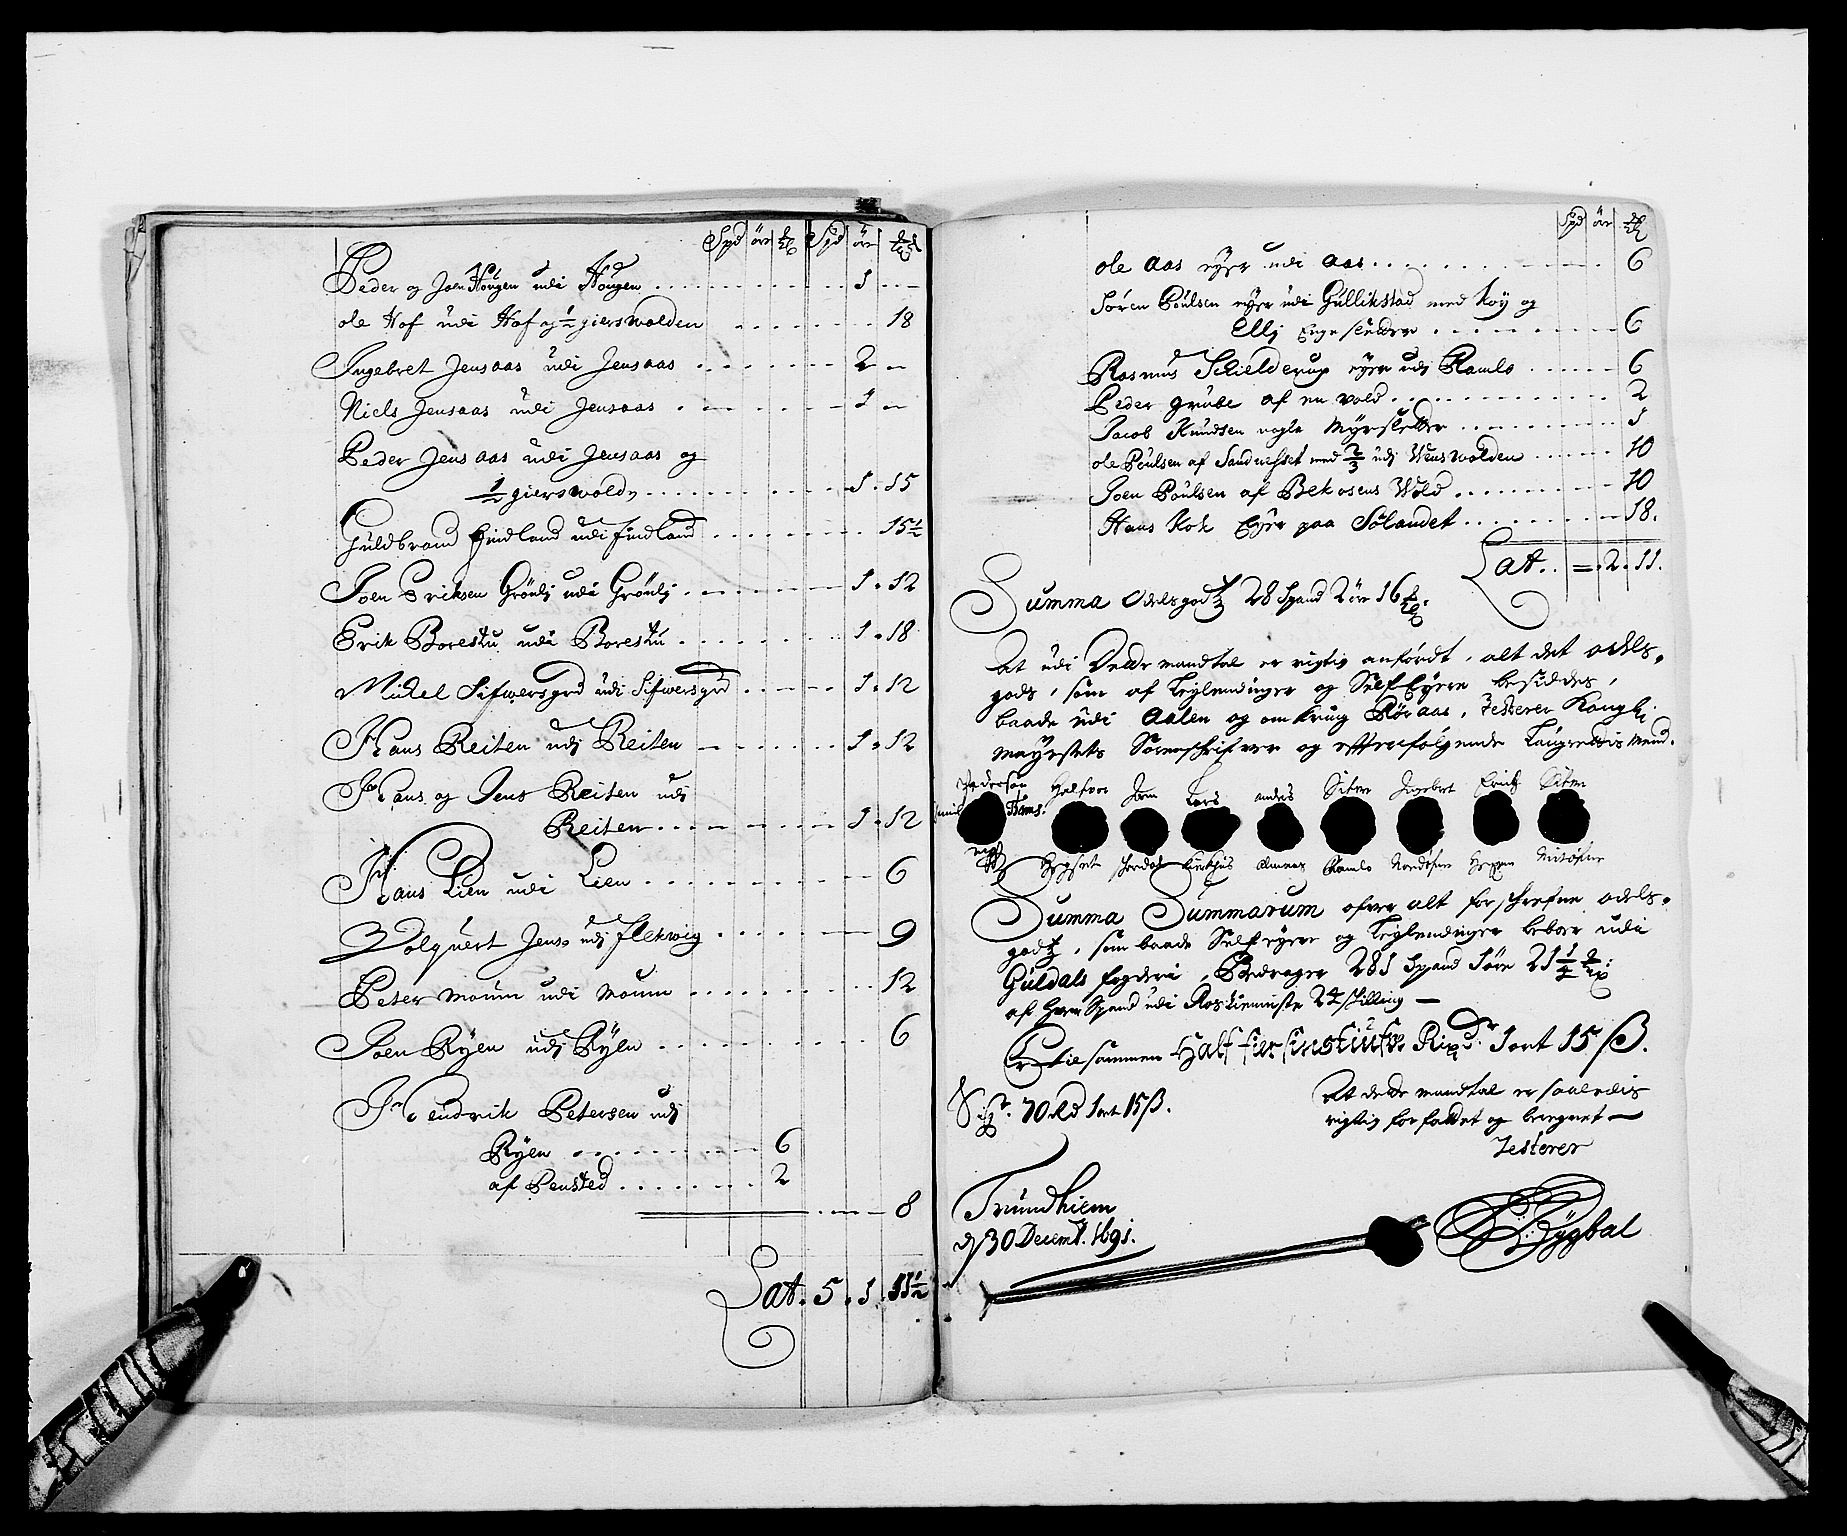 Spd øre Spd øre
Peder og Joen Hougen udi Hougen . . . 1 . -
ole Hof udi Hof og ½ gierswolden . . . 18
Ingebret Jensaas udi Jensaas . . . 2 -
Niels Jensaas udi Jensaas . . . 1 -
Peder Jensaas udi Jensaas og
½ gierswold, . . . 1 . 15
Guldbrand Findland udi Findland . . . 15½
Joen Eriksen Grönlj udi Grönlj . . . 1 . 12
Erik Borestu udi Borestu . . . 1 . 18
Mickel Sifwersgrd udi Sifwersgrd . . . 1 . 12
Hans Reiten udj Reiten . . . 1 . 12
Hans og Jens Reiten udj
Reiten . . . 1 . 12
Hans Lien udi Lien . . . 6
Volquert Jens. udj flekwig . . . 9
Peter Moum udi Moum . . . 12
Joen Rÿen udj Rÿen . . . 6
Hendrik Petersen udj
Rÿen . . . 6
af Pensted . . . 2
8
Lat. 5 . 1 . 11½
Spd øre
ole Aas eÿer udi Aas . . . 6
Sören Poulsen eÿer udi Gullikstad med Koy og
Ellj Enge sletter . . . 6
Rasmus Schielderup eÿer udj Ramlo . . . 6
Peder grübe af en vold . . . 2
Jacob Knudsen nogle Mÿrsletter . . . 1
ole Poulsen af Sandnehset med ⅔ udj Wenswolden . . . 10
Joen Poulsen af Bekosens Wold . . . 10
Hans Kok Eÿer paa Sölandet . . . 18.
Lat. . = . 2 . 11.
Summa Odelsgodtz 28 Spand 2 öre 16
At udi Dette mandtal er rigtig anfördt, alt det odels-
gods, som af Leylendinger og Self Eÿere besiddes,
baade udi Aalen og omkring Röraas, Testerer Kongl:
Mayestets Sorenschrifver og effterfölgende Laugrettis Mend.
Pedersön Halfvor Joen Lars anders Siver Ingebret Erich Siver
Hans.
Hegset Ramlo
Summa Summarum ofver alt forschrefne odels-
godtz, som baade Selfeÿere og Leylendinger beboer udi
Guldals fogderi, Bedrager 281 Spand 1 öre 21¼
af hver Spand udi Ros tienniste 24 skilling —
Er tilsammen Half fierSinstiufve Rixdr 1 ort 15 ß.
Sigr. 70 Rd 1 ort 15 ß.
At dette mandtal er saaledis
rigtig forfattet og beregnet —
Testerer
Trundhiem
d 30 Decemb. 1691.
Bÿgbal